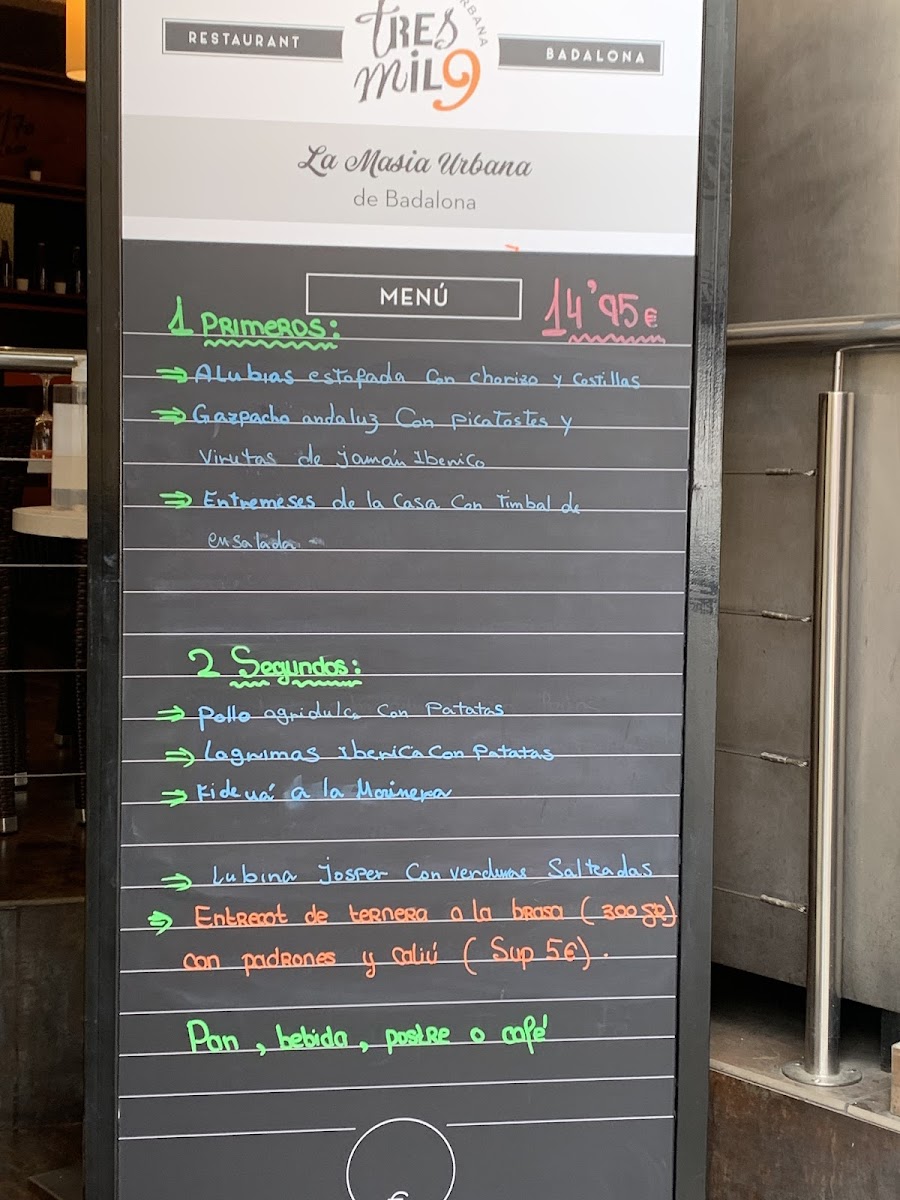 RESTAURANT
TRES
MIL9
URBANA
BADALONA
La Masia Urbana
de Badalona
MENÚ
14'95€
1 PRIMEROS:
⇒ Alubias estofada con chorizo y costillas
⇒ Gazpacho andaluz con picatostes y
virutas de jamón Iberico
⇒ Entremeses de la casa con timbal de
ensalada
2 Segundos:
⇒ Pollo agridulce con Patatas
⇒ Lagrimas Iberica con Patatas
⇒ Fideuá a la Marinera
⇒ Lubina Josper con verduras Salteadas
⇒ Entrecot de ternera a la brasa (300 gr)
con padrones y caliú (Sup 5€).
Pan, bebida, postre o café